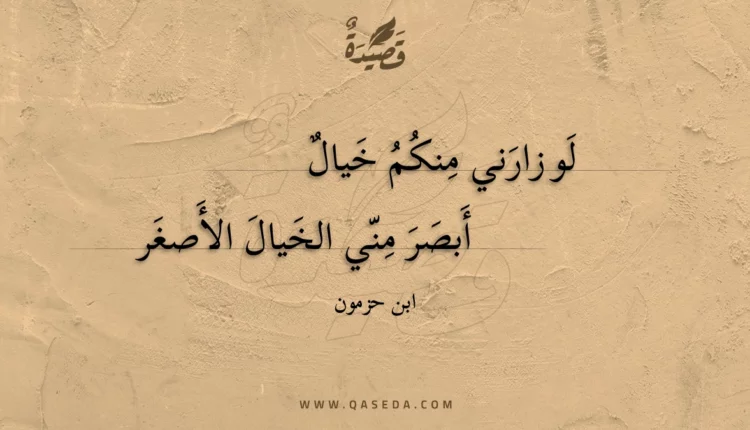 قَصِيدَةٌ
لَو زارَني مِنكُمُ خَيالٌ
أَبصَرَ مِنّي الخَيالَ الأَصغَر
ابن حزمون
WWW.QASEDA.COM